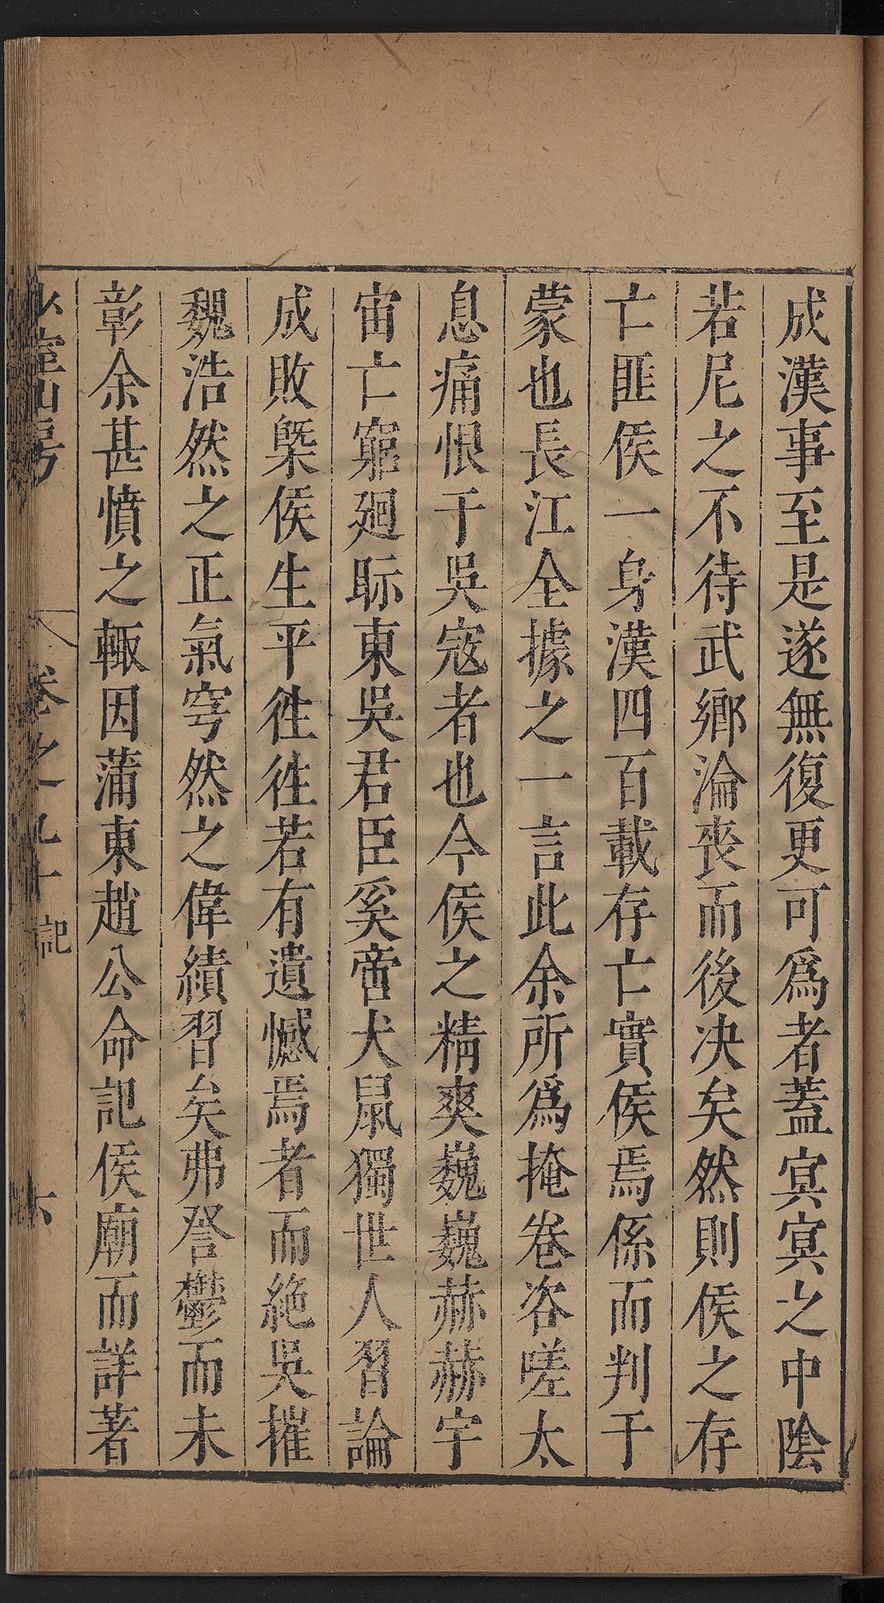 成漢事至是遂無復更可爲者蓋㝠㝠之中陰
若尼之不待武鄉淪喪而後决矣然則侯之存
亡匪侯一身漢四百載存亡實侯焉係而判于
蒙也長江全據之一言此余所爲掩卷咨嗟太
息痛恨于吳寇者也今侯之精爽巍巍赫赫宇
宙亡窮廻眎東吳君臣奚啻犬鼠獨世人習論
成敗槩侯生平徃徃若有遺憾焉者而絶吳摧
魏浩然之正氣穹然之偉績習矣弗詧鬱而未
彰余甚憤之輙因蒲東趙公命記侯廟而詳著
少室山房
卷之九十 記
六